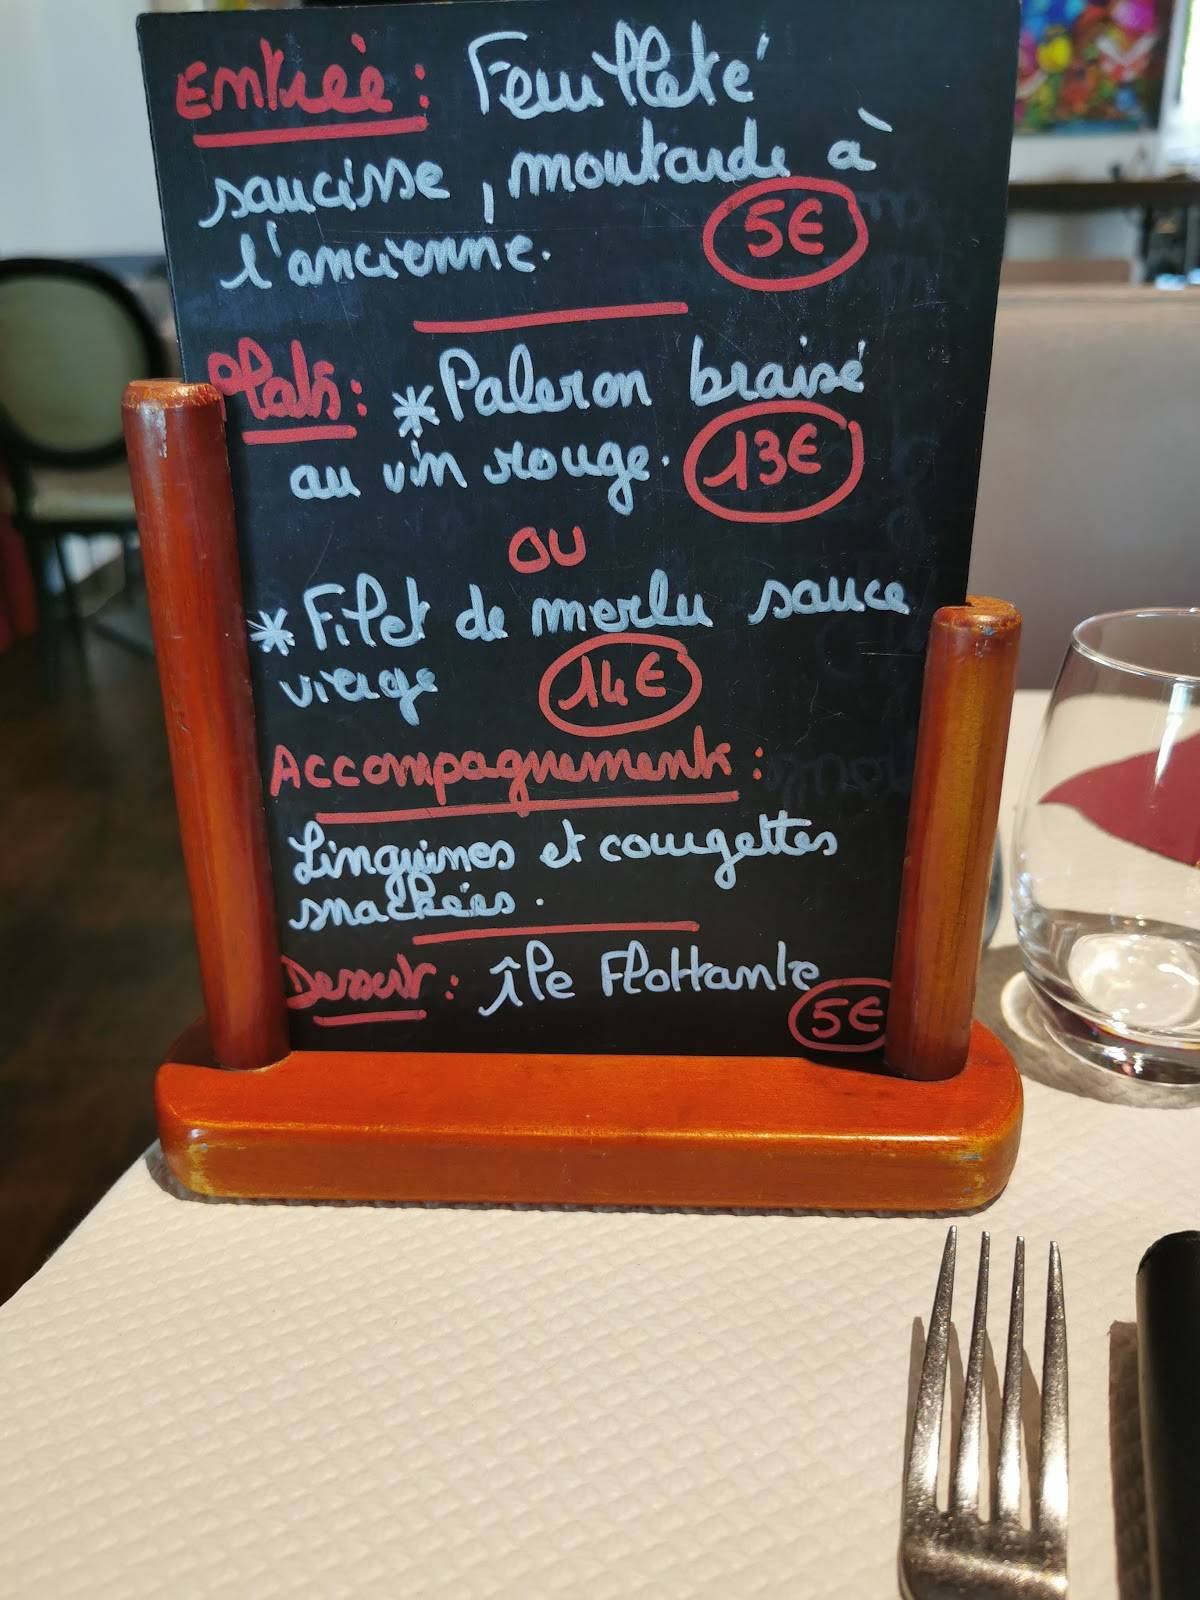 Entrée : Feuilleté
saucisse, moutarde à
l'ancienne. 5€
Plats : *Paleron braisé
au vin rouge. 13€
ou
*Filet de merlu sauce
vierge 14€
Accompagnements :
Linguines et courgettes
snackées.
Dessert : Île Flottante
5€